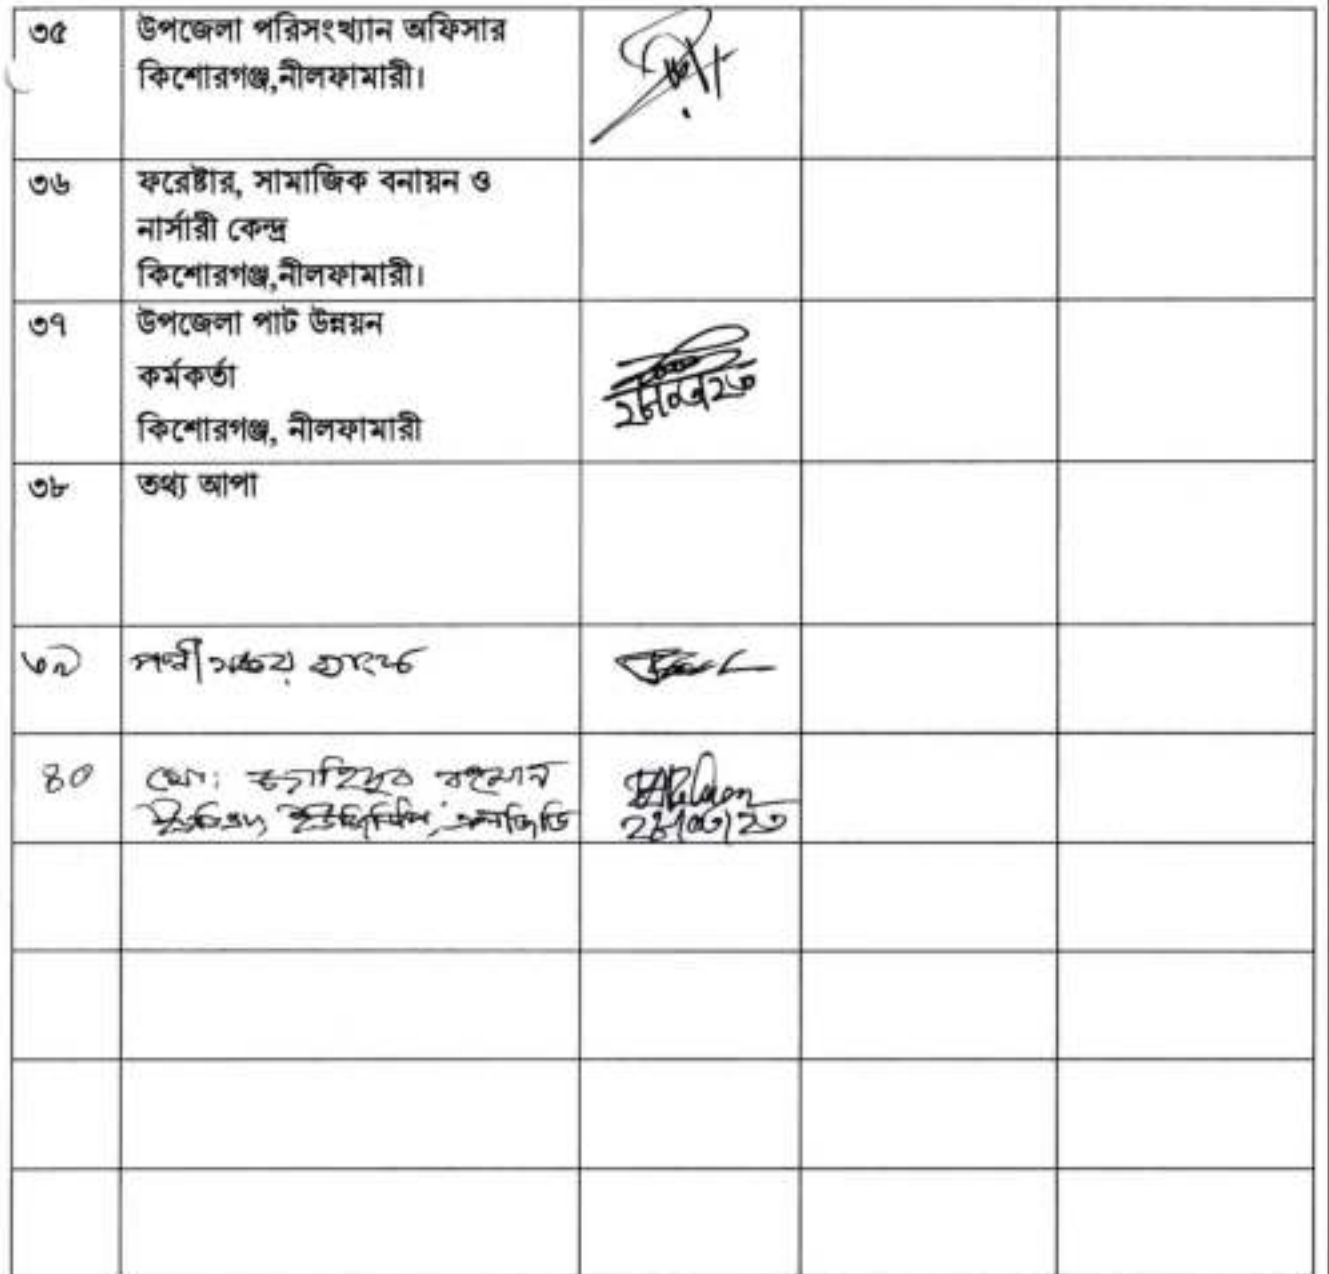 ৩৫ উপজেলা পরিসংখ্যান অফিসার
কিশোরগঞ্জ,নীলফামারী।
৩৬ ফরেষ্টার, সামাজিক বনায়ন ও
নার্সারী কেন্দ্র
কিশোরগঞ্জ,নীলফামারী।
৩৭ উপজেলা পাট উন্নয়ন
কর্মকর্তা
কিশোরগঞ্জ, নীলফামারী
৩৮ তথ্য আপা
৩৯ পল্লী সঞ্চয় ব্যাংক
৪০ মো: রহমান